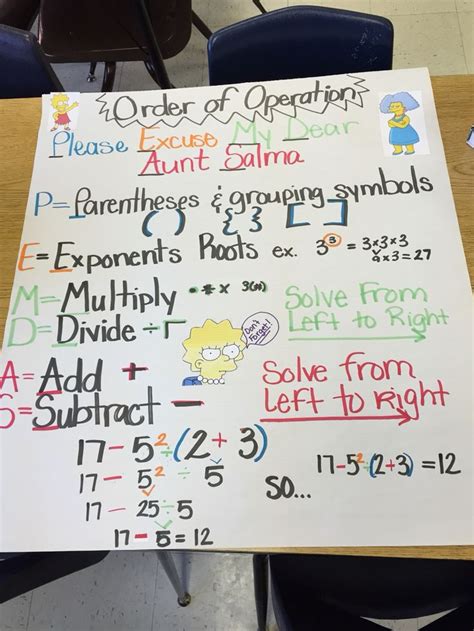 Order of Operation
Please Excuse My Dear
Aunt Salma
P=Parentheses & grouping symbols
( ) { } [ ]
E=Exponents Roots ex. 3³ = 3×3×3
9×3=27
M=Multiply • * × 3(4)
D=Divide ÷ Γ
Solve From
Left to Right
Don't
Forget!
A=Add +
S=Subtract −
Solve from
Left to Right
17−5²÷(2+3)
17 − 5² ÷ 5
17 − 25÷5
17 − 5 = 12
SO...
17−5²÷(2+3) =12